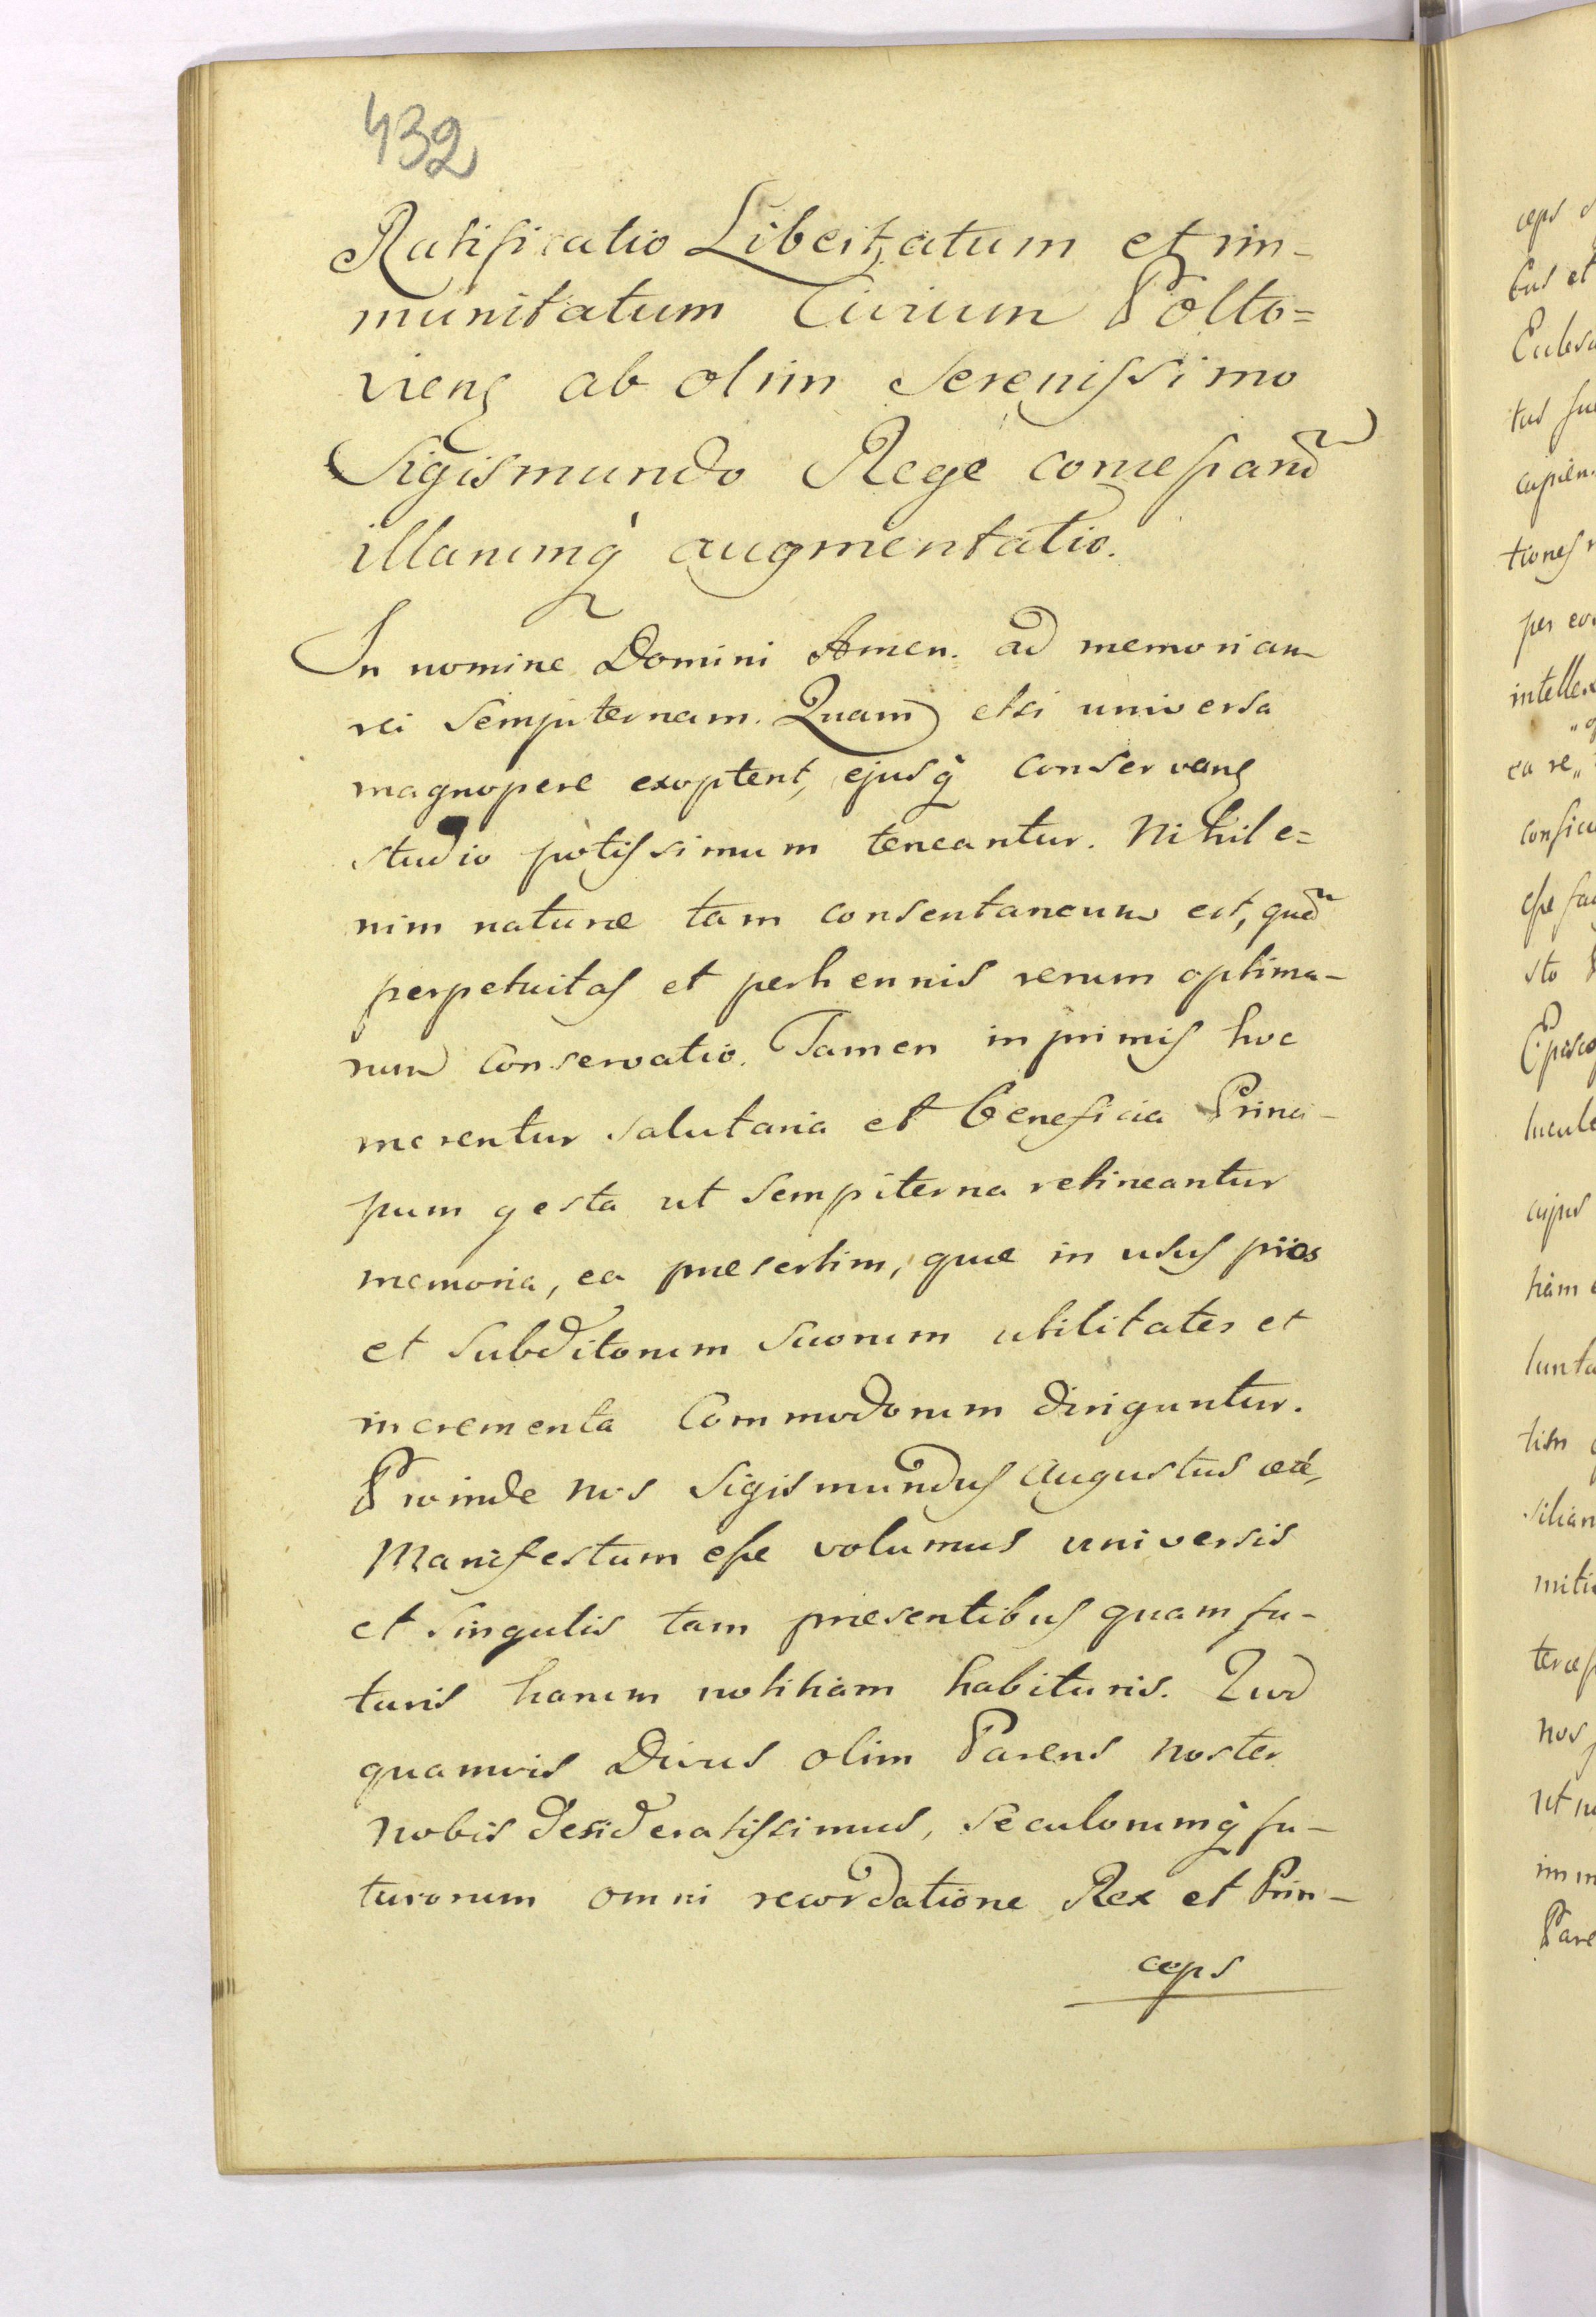 432
Ratificatio Libertatum et im-
munitatum Civium Polto=
viens ab olim Serenissimo
Sigismundo Rege concessand̃
illarumq̀ augmentatio.
In nomine Domini Amen. ad memoriam
rei Sempiternam. Quam etsi universa
magnopere exoptent, ejusq̀ conservang
studio potissimum teneantur. Nihil e=
nim naturæ tam consentaneum est, qued̃
perpetuitas et perhennis rerum optima-
rum Conservatio. Tamen inprimis hoc
merentur salutaria et Beneficia Princi-
pum gesta ut Sempiterna retineantur
memoria, ea præsertim, quæ in usus pios
et Subditorum Suorum utilitates et
incrementa Commodorum diriguntur.
Proinde nos Sigismundus Augustus etc̃,
Manifestum esse volumus universis
et Singulis tam præsentibus quam fu-
turis harum notitiam habituris. Quod
quamvis Divus olim Parens noster
nobis desideratissimus, Seculorumq̀ fu-
turorum omni recordatione Rex et Prin-
ceps
ceps
bus et
tus
cupien
tiones
per eos
intellex
ea re
confic
esse
sto
Episco
lucule
cujus
tiam
lunta
tim
silian
miti
nos
ut
imm
Pare